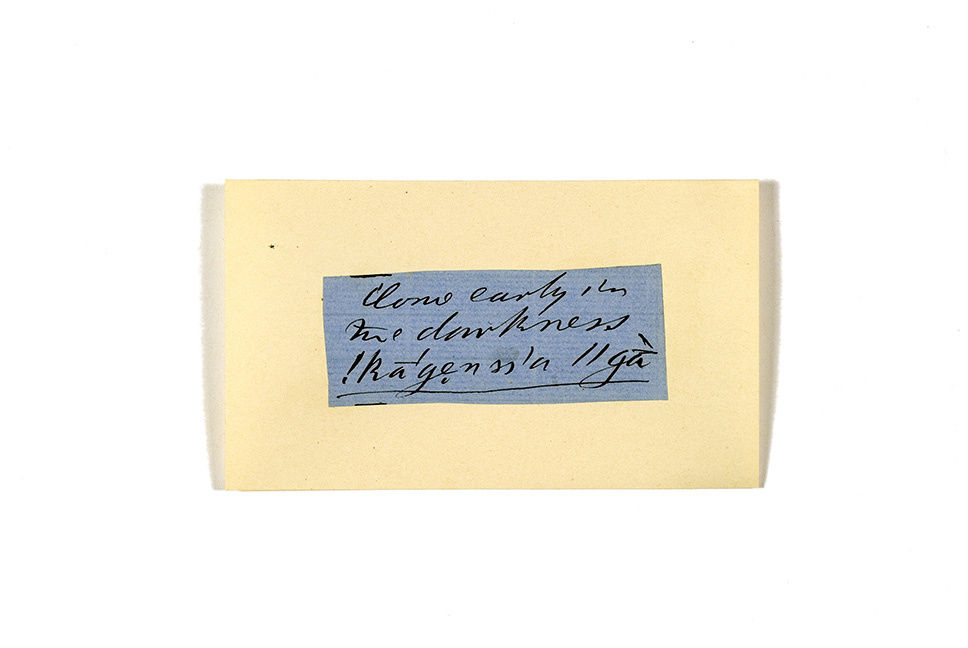 done early in
the darkness
!kā́gẹn ss'a ǁgā̀